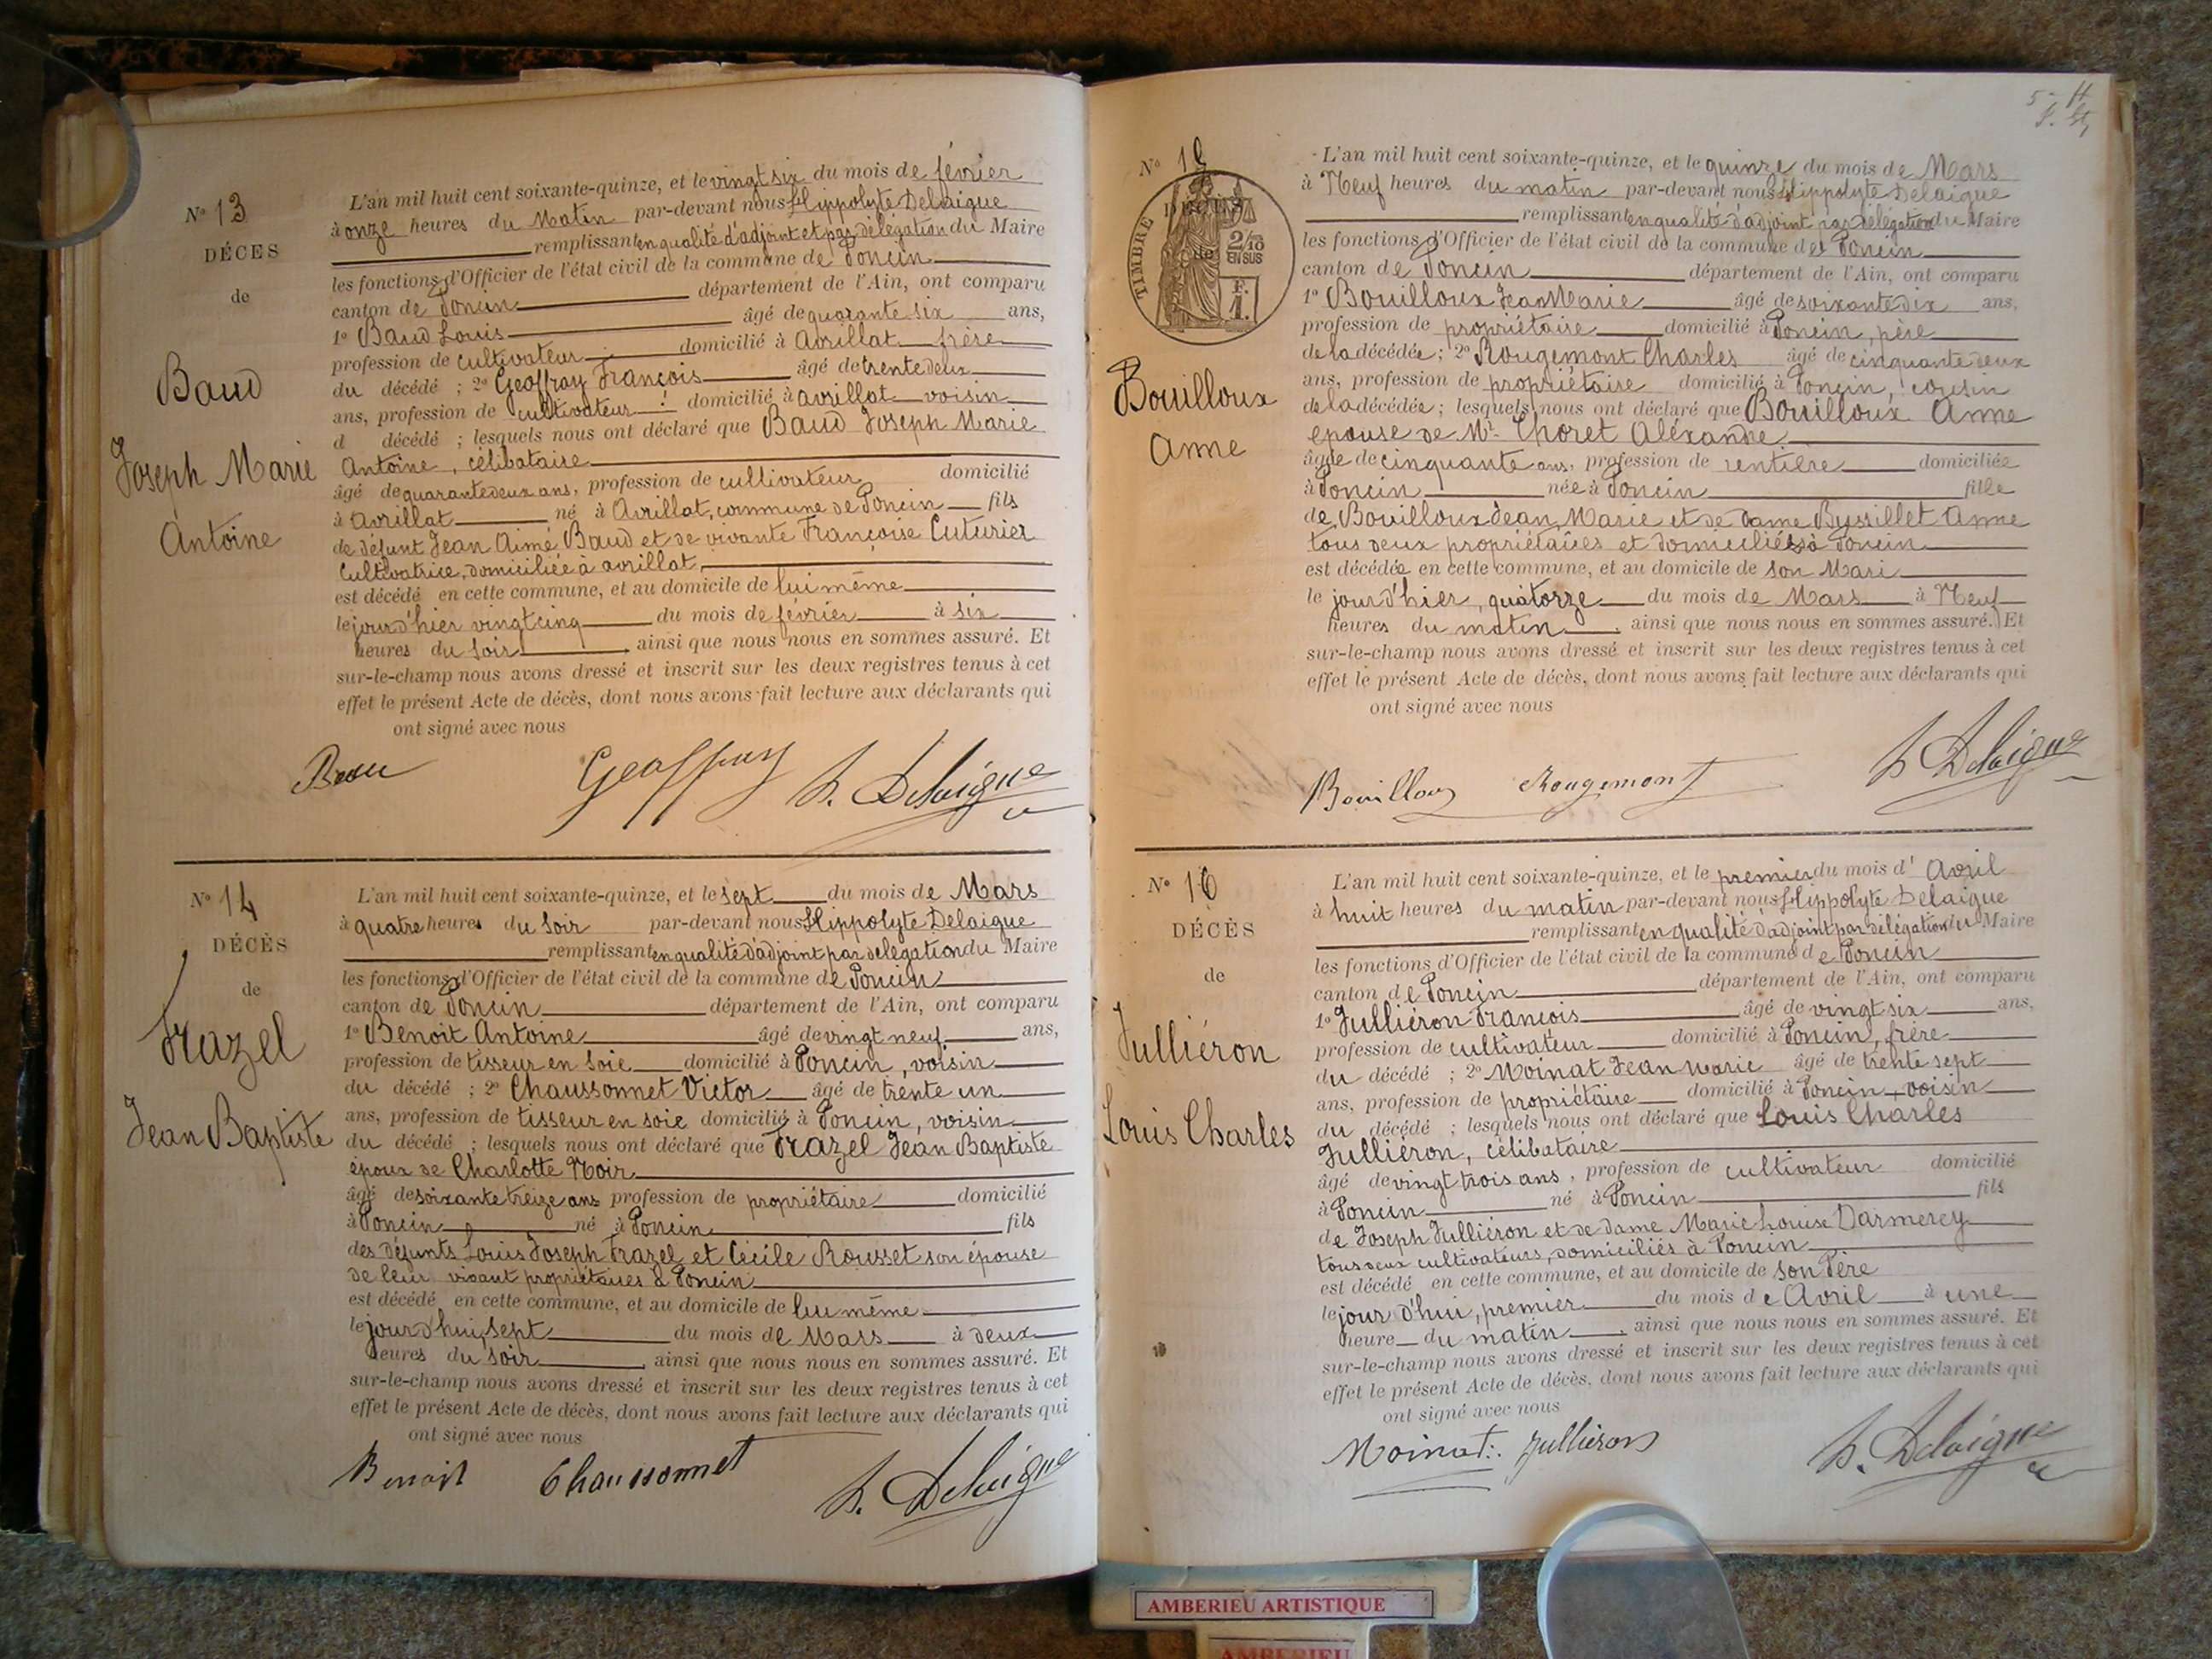 N° 13
DÉCÈS
de
Baud
Joseph Marie
Antoine
L'an mil huit cent soixante-quinze, et le vingt six du mois de février
à onze heures du Matin par-devant nous Hippolyte Delaigue
remplissant en qualité d'adjoint et par délégation du Maire
les fonctions d'Officier de l'état civil de la commune de Poncin
canton de Poncin département de l'Ain, ont comparu
1° Baud Louis âgé de quarante six ans,
profession de cultivateur domicilié à Avrillat frère
du décédé ; 2° Geoffray François âgé de trente deux
ans, profession de cultivateur domicilié à avrillat voisin
d décédé ; lesquels nous ont déclaré que Baud Joseph Marie
Antoine, célibataire
âgé de quarante deux ans, profession de cultivateur domicilié
à Avrillat né à Avrillat, commune de Poncin fils
de défunt Jean Aimé Baud et de vivante Françoise Cuturier
Cultivatrice, domiciliée à avrillat,
est décédé en cette commune, et au domicile de lui même
le jour d'hier vingt cinq du mois de février à six
heures du soir ainsi que nous nous en sommes assuré. Et
sur-le-champ nous avons dressé et inscrit sur les deux registres tenus à cet
effet le présent Acte de décès, dont nous avons fait lecture aux déclarants qui
ont signé avec nous
Geoffray H. Delaigue
N° 14
DÉCÈS
de
Frazel
Jean Baptiste
L'an mil huit cent soixante-quinze, et le sept du mois de Mars
à quatre heures du Soir par-devant nous Hippolyte Delaigue
remplissant en qualité d'adjoint par délégation du Maire
les fonctions d'Officier de l'état civil de la commune de Poncin
canton de Poncin département de l'Ain, ont comparu
1° Benoit Antoine âgé de vingt neuf ans,
profession de tisseur en soie domicilié à Poncin, voisin
du décédé ; 2° Chaussonnet Victor âgé de trente un
ans, profession de tisseur en soie domicilié à Poncin, voisin
du décédé ; lesquels nous ont déclaré que Frazel Jean Baptiste
époux de Charlotte Noir
âgé de soixante treize ans profession de propriétaire domicilié
à Poncin né à Poncin fils
des défunts Louis Joseph Frazel et Cécile Rousset son épouse
de leur vivant propriétaires à Poncin
est décédé en cette commune, et au domicile de lui même
le jour d'hui, sept du mois de Mars à deux
heures du soir ainsi que nous nous en sommes assuré. Et
sur-le-champ nous avons dressé et inscrit sur les deux registres tenus à cet
effet le présent Acte de décès, dont nous avons fait lecture aux déclarants qui
ont signé avec nous
Benoit Chaussonnet H. Delaigue
N° 15
TIMBRE
2/10
EN SUS
F.
1.
Bouilloux
Anne
L'an mil huit cent soixante-quinze, et le quinze du mois de Mars
à Neuf heures du matin par-devant nous Hippolyte Delaigue
remplissant en qualité d'adjoint par délégation du Maire
les fonctions d'Officier de l'état civil de la commune de Poncin
canton de Poncin département de l'Ain, ont comparu
1° Bouilloux Jean Marie âgé de soixante dix ans,
profession de propriétaire domicilié à Poncin, père
de la décédée ; 2° Rougemont Charles âgé de cinquante deux
ans, profession de propriétaire domicilié à Poncin, cousin
de la décédée ; lesquels nous ont déclaré que Bouilloux Anne
epouse de Mr Choret Aléxandre
âgée de cinquante ans, profession de rentière domiciliée
à Poncin née à Poncin fille
de Bouilloux Jean, Marie et de Dame Bussillet Anne
tous deux propriétaires et domiciliés à Poncin
est décédée en cette commune, et au domicile de son Mari
le jour d'hier, quatorze du mois de Mars à Neuf
heures du matin ainsi que nous nous en sommes assuré. Et
sur-le-champ nous avons dressé et inscrit sur les deux registres tenus à cet
effet le présent Acte de décès, dont nous avons fait lecture aux déclarants qui
ont signé avec nous
Bouilloux Rougemont H. Delaigue
N° 16
DÉCÈS
de
Julliéron
Louis Charles
L'an mil huit cent soixante-quinze, et le premier du mois d' Avril
à huit heures du matin par-devant nous Hippolyte Delaigue
remplissant en qualité d'adjoint par délégation du Maire
les fonctions d'Officier de l'état civil de la commune de Poncin
canton de Poncin département de l'Ain, ont comparu
1° Julliéron François âgé de vingt six ans,
profession de cultivateur domicilié à Poncin, frère
du décédé ; 2° Moinat Jean Marie âgé de trente sept
ans, profession de propriétaire domicilié à Poncin, voisin
du décédé ; lesquels nous ont déclaré que Louis Charles
Julliéron, célibataire
âgé de vingt trois ans, profession de cultivateur domicilié
à Poncin né à Poncin fils
de Joseph Julliéron et de Dame Marie Louise Darmerey
tous deux cultivateurs, domiciliés à Poncin
est décédé en cette commune, et au domicile de son Père
le jour d'hui, premier du mois de Avril à une
heure du matin ainsi que nous nous en sommes assuré. Et
sur-le-champ nous avons dressé et inscrit sur les deux registres tenus à cet
effet le présent Acte de décès, dont nous avons fait lecture aux déclarants qui
ont signé avec nous
Moinat Julliéron H. Delaigue
AMBERIEU ARTISTIQUE
AMBERIEU